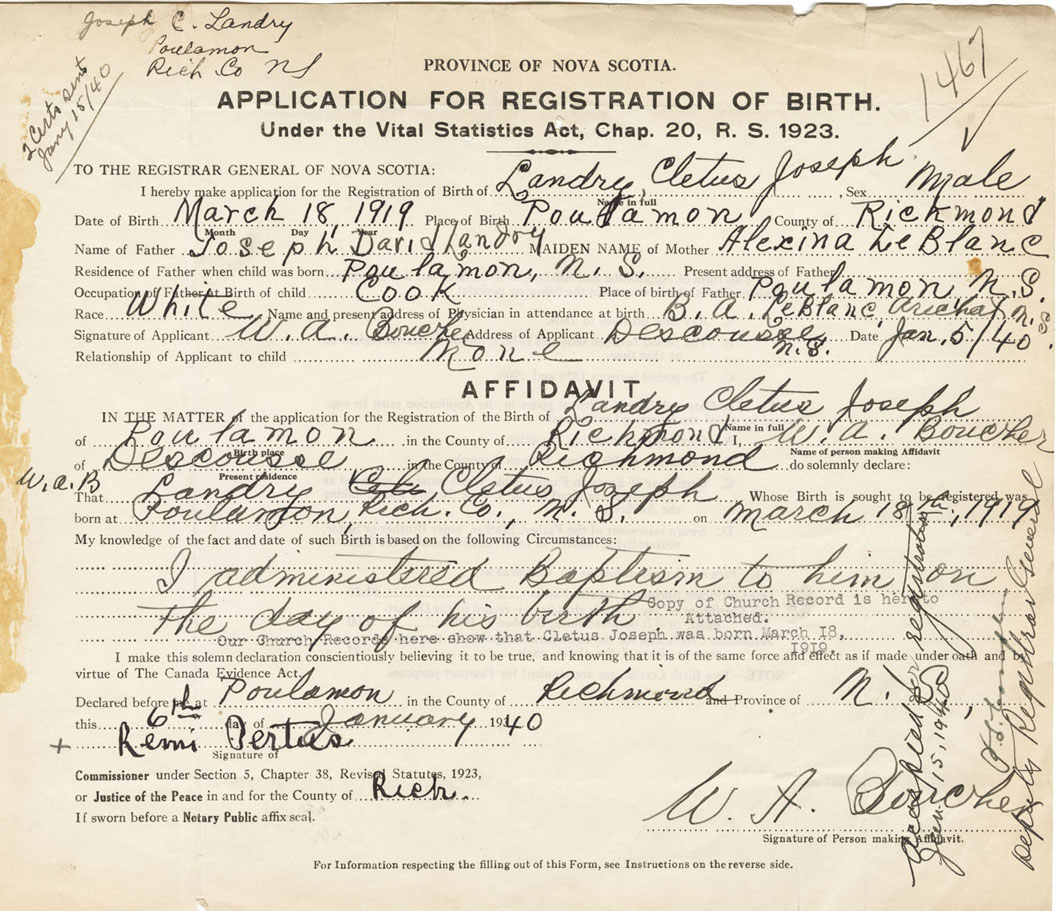 Joseph C. Landry
Poulamon
Rich Co NS
2 Certs sent
Jany 15/40
1467
PROVINCE OF NOVA SCOTIA.
APPLICATION FOR REGISTRATION OF BIRTH.
Under the Vital Statistics Act, Chap. 20, R. S. 1923.
TO THE REGISTRAR GENERAL OF NOVA SCOTIA:
I hereby make application for the Registration of Birth of Landry, Cletus Joseph Sex Male
Name in full
Date of Birth March 18, 1919 Place of Birth Poulamon County of Richmond
Month Day Year
Name of Father Joseph David Landry MAIDEN NAME of Mother Alexina LeBlanc
Residence of Father when child was born Poulamon, N. S. Present address of Father
Occupation of Father at Birth of child Cook Place of birth of Father Poulamon N.S.
Race White Name and present address of Physician in attendance at birth B. A. LeBlanc, Arichat N.S.
Signature of Applicant W. A. Boucher Address of Applicant Descousse, N.S. Date Jan. 5/40
Relationship of Applicant to child None
AFFIDAVIT
IN THE MATTER of the application for the Registration of the Birth of Landry Cletus Joseph
Name in full
of Poulamon in the County of Richmond I, W. A. Boucher
Birth place Name of person making Affidavit
of Descousse in the County of Richmond do solemnly declare:
Present residence
W.A.B
That Landry Cletus Joseph Whose Birth is sought to be registered was
born at Poulamon, Rich. Co., N. S. on March 18th, 1919
My knowledge of the fact and date of such Birth is based on the following Circumstances:
I administered Baptism to him on
the day of his birth Copy of Church Record is hereto
Attached.
Our Church Records here show that Cletus Joseph was born March 18,
1919.
I make this solemn declaration conscientiously believing it to be true, and knowing that it is of the same force and effect as if made under oath and by
virtue of The Canada Evidence Act.
Declared before me at Poulamon in the County of Richmond and Province of N. S.,
this 6th day of January 1940
+ Remi Pertus
Signature of
Commissioner under Section 5, Chapter 38, Revised Statutes, 1923,
or Justice of the Peace in and for the County of Rich.
If sworn before a Notary Public affix seal.
W. A. Boucher
Signature of Person making Affidavit.
Accepted for registration
Jan. 15, 1940
Deputy Registrar General
For Information respecting the filling out of this Form, see Instructions on the reverse side.